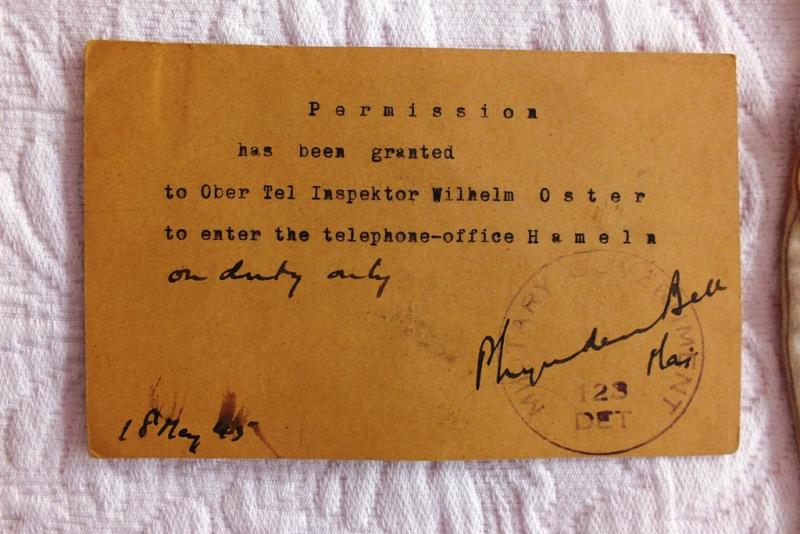 Permission
has been granted
to Ober Tel Inspektor Wilhelm Oster
to enter the telephone-office Hameln
on duty only
Bell
Maj
MILITARY GOVERNMENT
123
DET
18 May 45